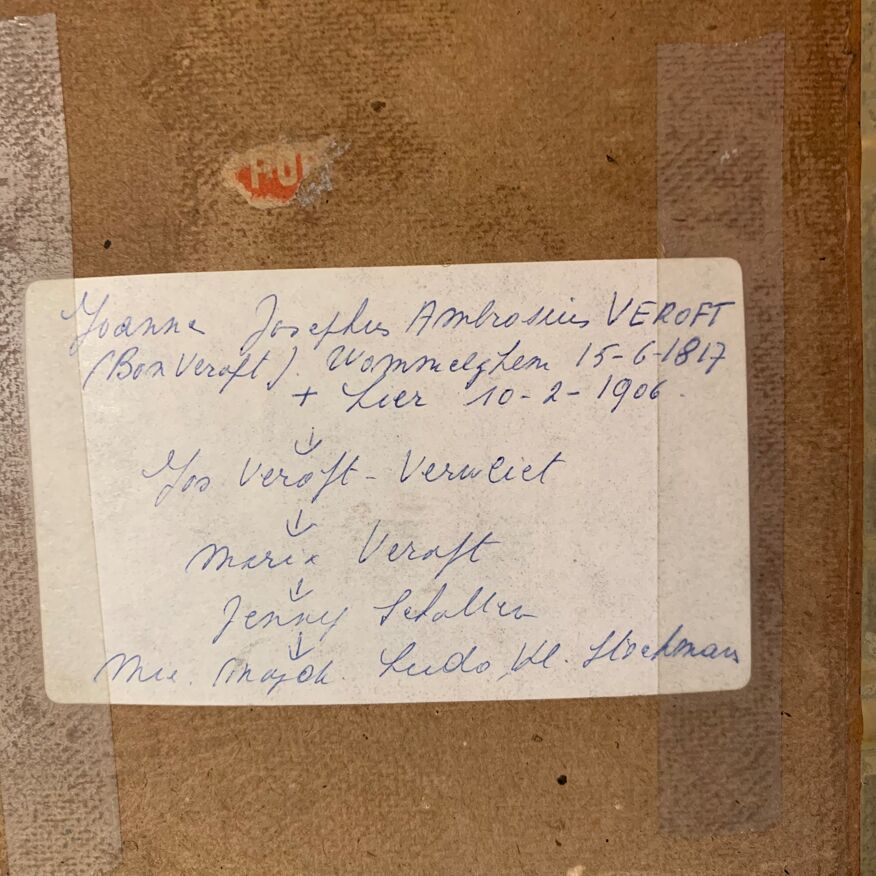 Joanna Josephus Ambrosius VEROFT
(Bon Veroft). Wommelghem 15-6-1817
+ Lier 10-2-1906.
↓
Jos Veroft - Vervliet
↓
Maria Veroft
↓
Jenny
↓
Ludo, Kl. Stockmans